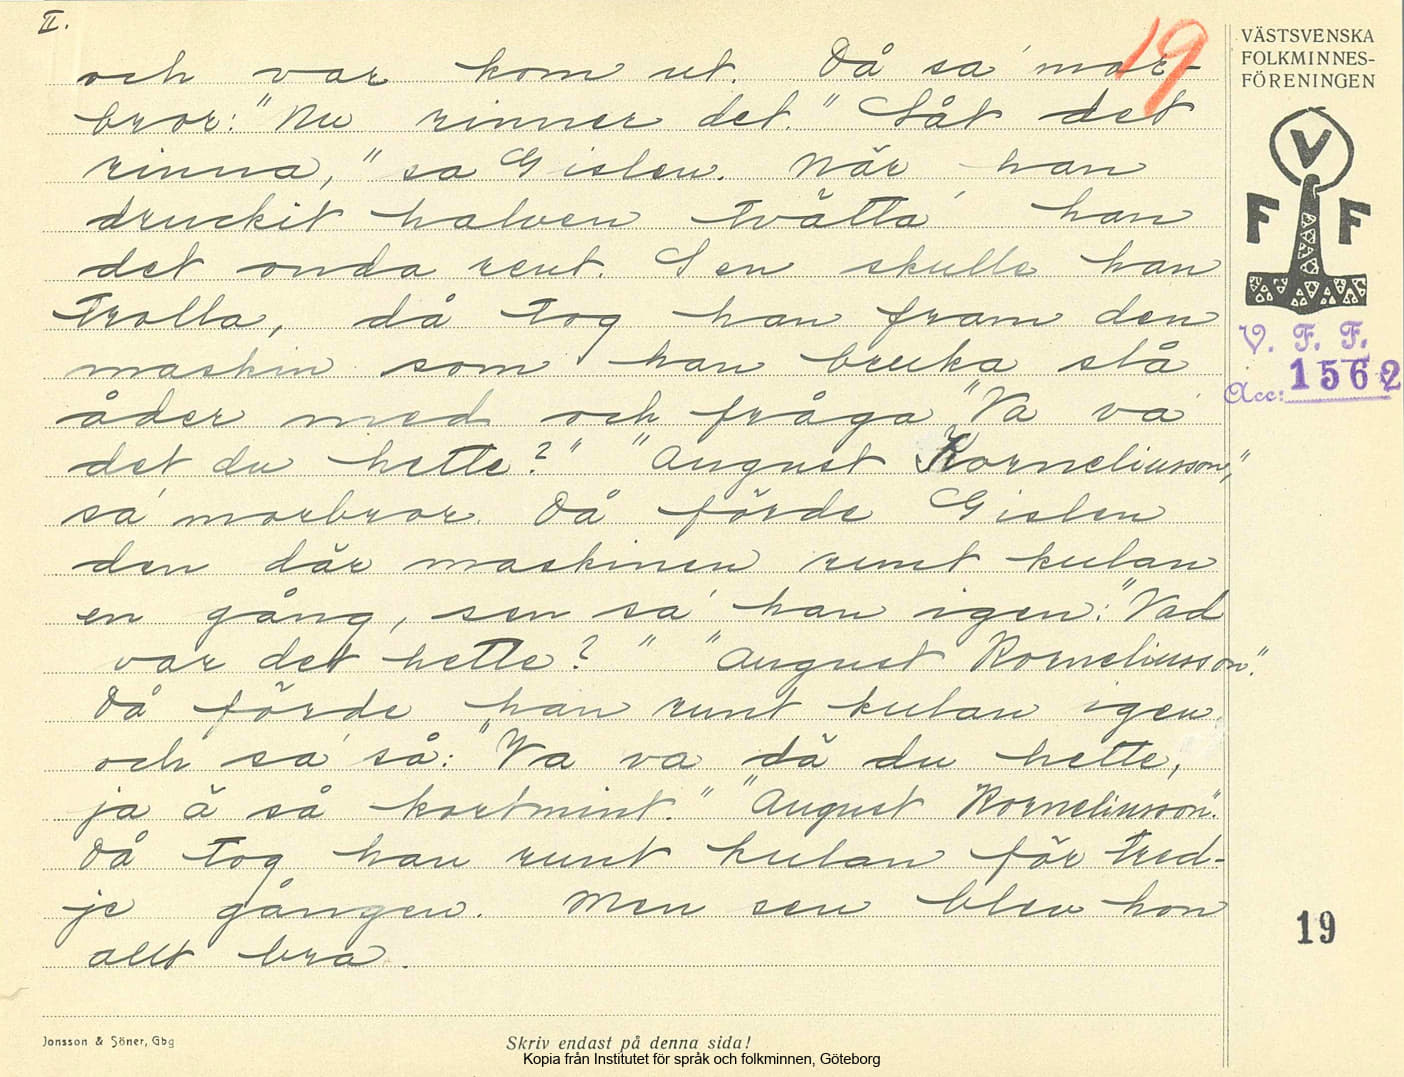 II.
19
VÄSTSVENSKA
FOLKMINNES-
FÖRENINGEN
V
F F
V. F. F.
Acc: 1562
och var kom ut. Då sa' mor-
bror: "Nu rinner det." "Låt det
rinna," sa Gislen. När han
druckit halven tvätta' han
det onda rent. Sen skulle han
trolla, då tog han fram den
maskin som han bruka slå
åder med och fråga "Va va'
det du hette?" "August Korneliusson,"
sa' morbror. Då förde Gislen
den där maskinen runt kulan
en gång, sen sa' han igen: "Vad
var det hette?" "August Korneliusson".
Då förde han runt kulan igen
och sa' så: "Va va dä du hette,
ja ä så kortmint." "August Korneliusson".
Då tog han runt kulan för tred-
je gången. Men sen blev hon
allt bra.
19
Jonsson & Söner, Gbg
Skriv endast på denna sida!
Kopia från Institutet för språk och folkminnen, Göteborg